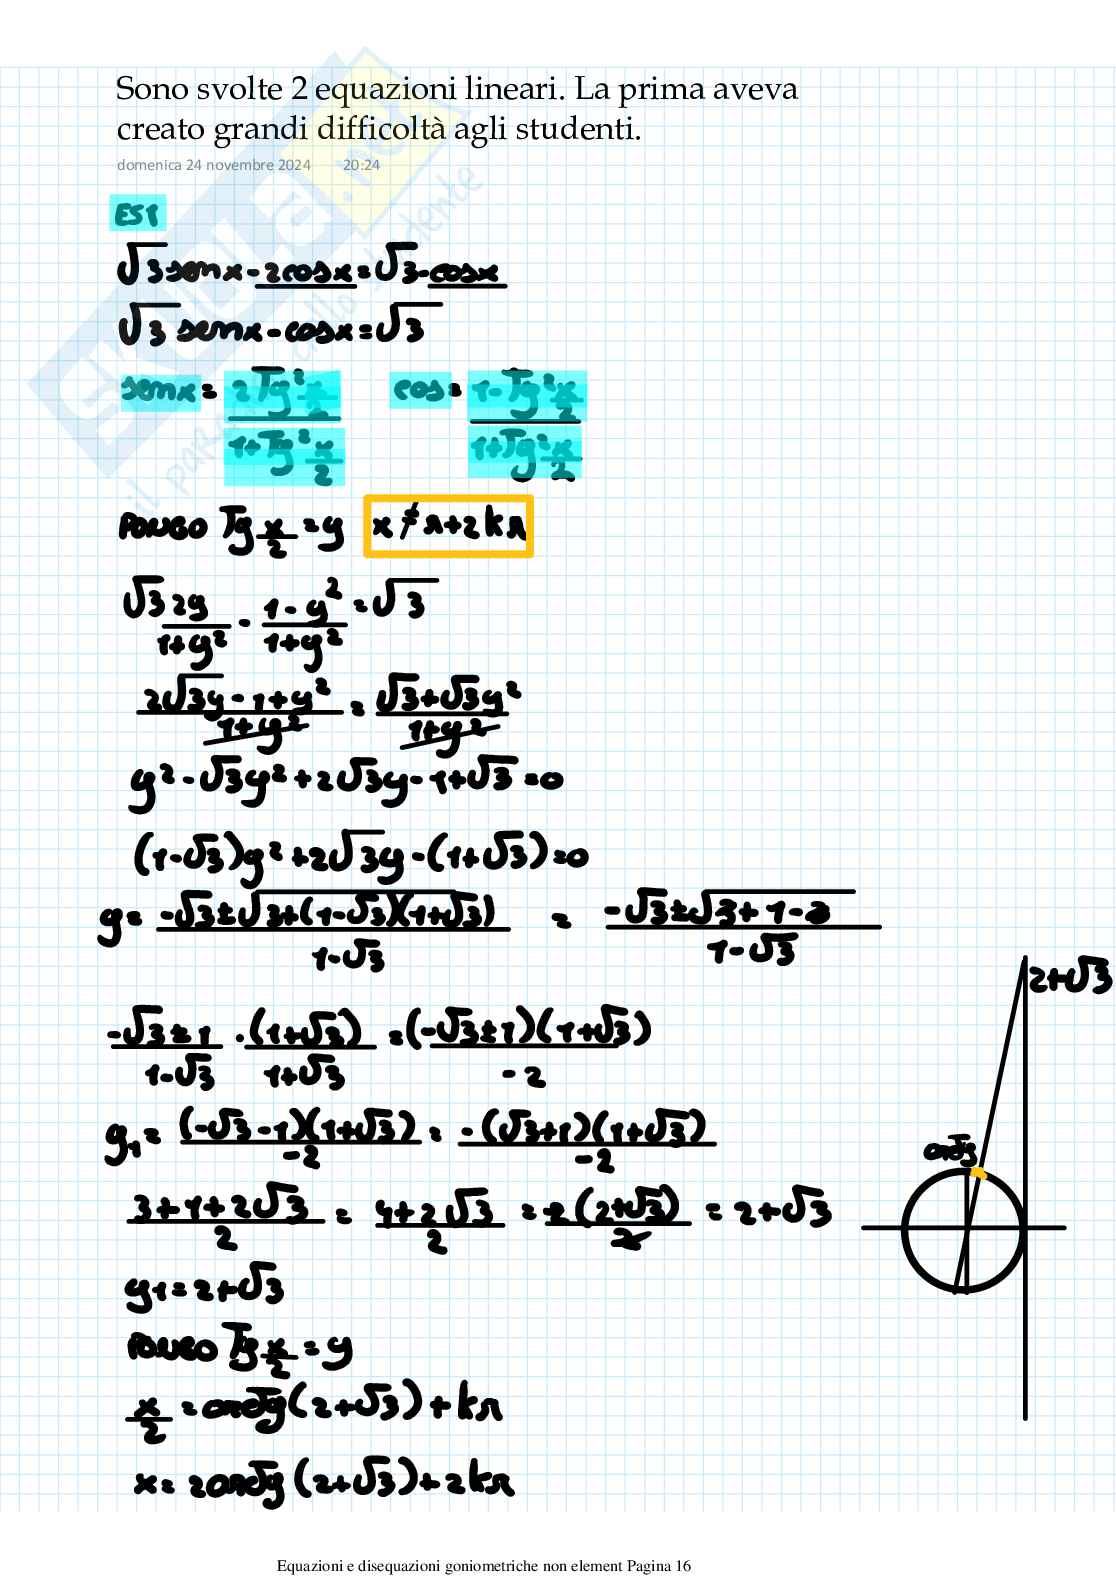 Sono svolte 2 equazioni lineari. La prima aveva
creato grandi difficoltà agli studenti.
domenica 24 novembre 2024 20:24
ES1
√3 senx - 2cosx = √3 - cosx
√3 senx - cosx = √3
senx = 2Tg² x/2 / 1+Tg² x/2 cos = 1-Tg² x/2 / 1+Tg² x/2
PONGO Tg x/2 = y x ≠ π+2kπ
√3 2y/1+y² - 1-y²/1+y² = √3
2√3y-1+y²/1+y² = √3+√3y²/1+y²
y²-√3y²+2√3y-1+√3=0
(1-√3)y²+2√3y-(1+√3)=0
y= -√3±√3+(1-√3)(1+√3) / 1-√3 = -√3±√3+1-3 / 1-√3
2+√3
-√3±1/1-√3 · (1+√3)/1+√3 = (-√3±1)(1+√3)/-2
y₁= (-√3-1)(1+√3)/-2 = -(√3+1)(1+√3)/-2
arctg
3+1+2√3/2 = 4+2√3/2 = 2(2+√3)/2 = 2+√3
y1=2+√3
PONGO Tg x/2 = y
x/2 = arctg(2+√3)+kπ
x= 2arctg(2+√3)+2kπ
Equazioni e disequazioni goniometriche non element Pagina 16
SKUOLA.net
il paradiso dello studente